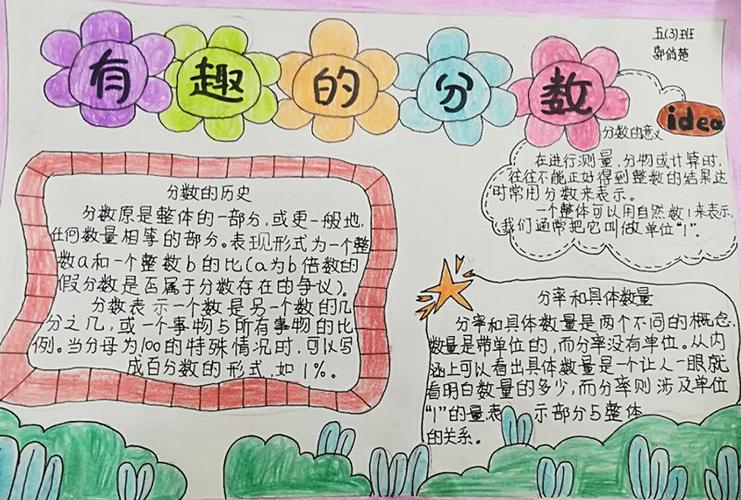 有趣的分数
五(3)班
郭俏楚
idea
分数的意义
在进行测量、分物或计算时,
往往不能正好得到整数的结果这
时常用分数来表示。
一个整体可以用自然数1来表示,
我们通常把它叫做单位"1"。
分数的历史
分数原是整体的一部分,或更一般地,
任何数量相等的部分。表现形式为一个整
数a和一个整数b的比(a为b倍数的
假分数是否属于分数存在的争议)。
分数表示一个数是另一个数的几
分之几,或一个事物与所有事物的比
例。当分母为100的特殊情况时,可以写
成百分数的形式,如1%。
分率和具体数量
分率和具体数量是两个不同的概念,
数量是带单位的,而分率没有单位。从内
涵上可以看出具体数量是一个让人一眼就
看明白数量的多少,而分率则涉及单位
"1"的量表 示部分与整体
的关系。